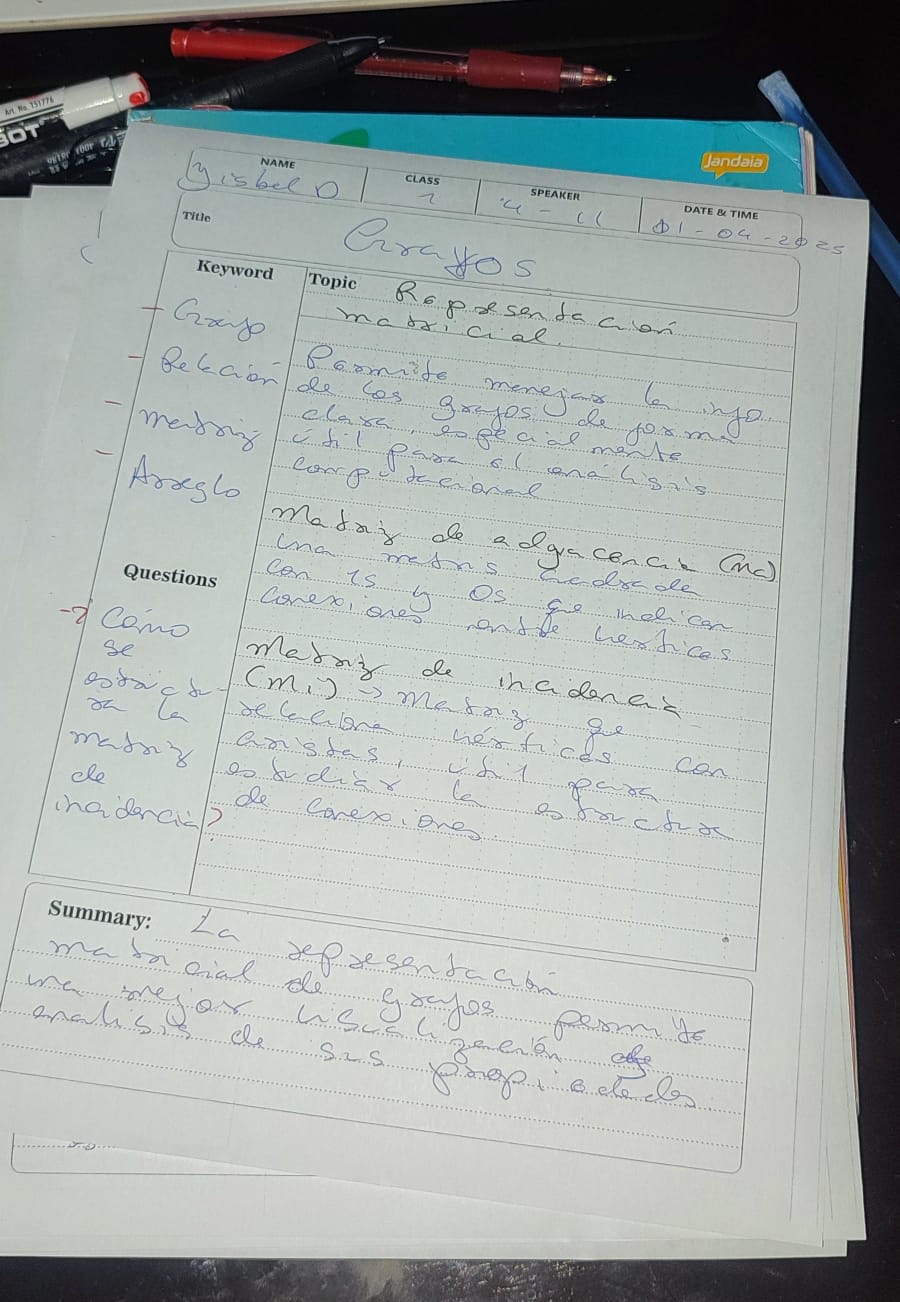 Art. No. 751776
BOT
Jandaia
NAME
Yisbel O
CLASS
1
SPEAKER
4-11
DATE & TIME
01-04-2025
Title
Grafos
Keyword
Grafo
Relación
Matriz
Arreglo
Questions
-? Cómo
se
estructu-
ra la
matriz
de
incidencia?
Topic Representación
matricial.
Permite menejar la info
de los grafos de forma
clara, especialmente
útil para el análisis
computacional
Matriz de adyacencia (Mc)
una matris cuadrada
con 1s y 0s qe indican
conexiones entre vertices
Matriz de incidencia
(Mi) → Matriz qe
relaciona vértices con
aristas, útil para
estudiar la estructura
de conexiones
Summary: La representación
matricial de grafos permite
una mejor visualización
analisis de sus propiedades